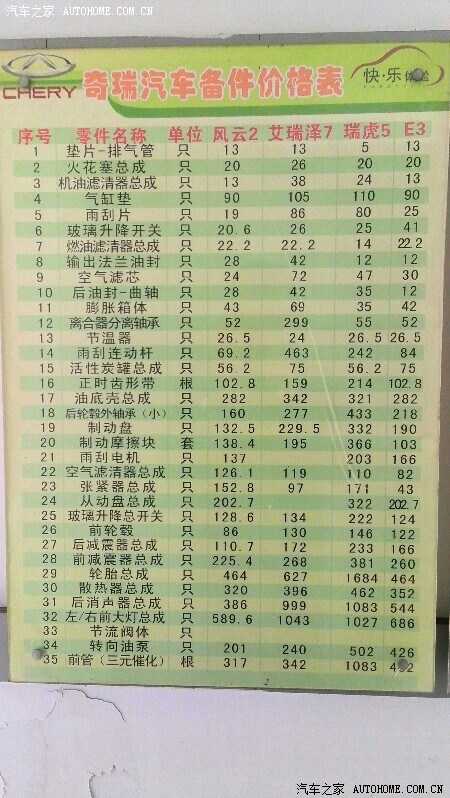 汽车之家 AUTOHOME.COM.CN
CHERY 奇瑞汽车备件价格表 快·乐体验
序号 零件名称 单位 风云2 艾瑞泽7 瑞虎5 E3
1 垫片-排气管 只 13 13 5 13
2 火花塞总成 只 20 26 20 20
3 机油滤清器总成 只 13 38 24 13
4 气缸垫 只 90 105 110 90
5 雨刮片 只 19 86 80 25
6 玻璃升降开关 只 20.6 26 25 41
7 燃油滤清器总成 只 22.2 22.2 14 22.2
8 输出法兰油封 只 28 42 12 12
9 空气滤芯 只 24 72 47 30
10 后油封-曲轴 只 28 42 35 12
11 膨胀箱体 只 43 69 35 42
12 离合器分离轴承 只 52 299 55 52
13 节温器 只 26.5 24 26.5 26.5
14 雨刮连动杆 只 69.2 463 242 84
15 活性炭罐总成 只 56.2 75 56.2 75
16 正时齿形带 根 102.8 159 214 102.8
17 油底壳总成 只 282 342 321 282
18 后轮毂外轴承（小） 只 160 277 433 218
19 制动盘 只 132.5 229.5 332 190
20 制动摩擦块 套 138.4 195 366 103
21 雨刮电机 只 137 203 166
22 空气滤清器总成 只 126.1 119 110 82
23 张紧器总成 只 152.8 97 171 43
24 从动盘总成 只 202.7 322 202.7
25 玻璃升降总开关 只 128.6 134 222 124
26 前轮毂 只 86 130 146 122
27 后减震器总成 只 110.7 172 233 166
28 前减震器总成 只 225.4 268 381 260
29 轮胎总成 只 464 627 1684 464
30 散热器总成 只 320 396 462 352
31 后消声器总成 只 386 999 1083 544
32 左/右前大灯总成 只 589.6 1043 1027 686
33 节流阀体 只
34 转向油泵 只 201 240 502 426
35 前管（三元催化） 根 317 342 1083
汽车之家 AUTOHOME.COM.CN